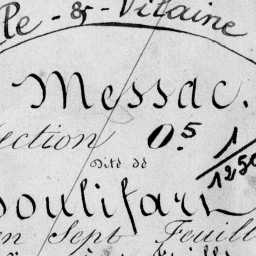 lle-&-Vilaine
Messac.
Section O.5
1/1250
Dité de
Boulifard
en Sept Feuill